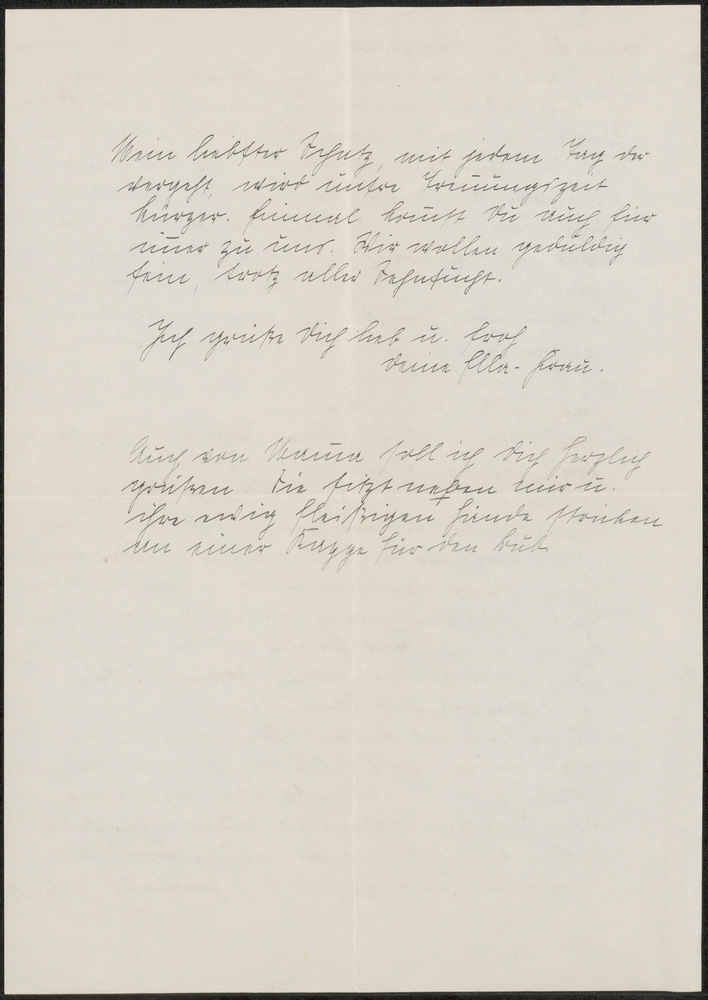 Mein liebster Schatz, mit jedem Tag der
vergeht, wird unsre Trennungszeit
kürzer. Einmal kommst Du auch für
immer zu uns. Wir wollen geduldig
sein, trotz aller Sehnsucht.
Ich grüße Dich lieb u. froh
deine Ella-Frau.
Auch von Mama soll ich Dich herzlich
grüßen. Sie sitzt neben mir u.
ihre ewig fleißigen Hände stricken
an einer Kappe für den Bub.